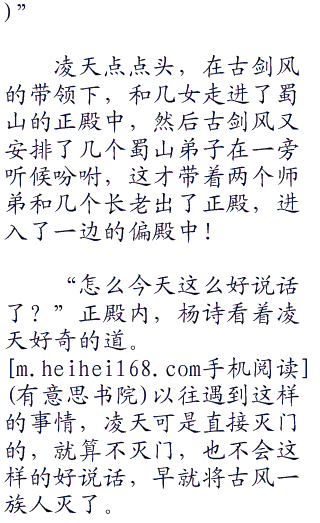 )”
凌天点点头，在古剑风
的带领下，和几女走进了蜀
山的正殿中，然后古剑风又
安排了几个蜀山弟子在一旁
听候吩咐，这才带着两个师
弟和几个长老出了正殿，进
入了一边的偏殿中！
“怎么今天这么好说话
了？”正殿内，杨诗看着凌
天好奇的道。
[m.heihei168.com手机阅读]
(有意思书院)以往遇到这样
的事情，凌天可是直接灭门
的，就算不灭门，也不会这
样的好说话，早就将古风一
族人灭了。